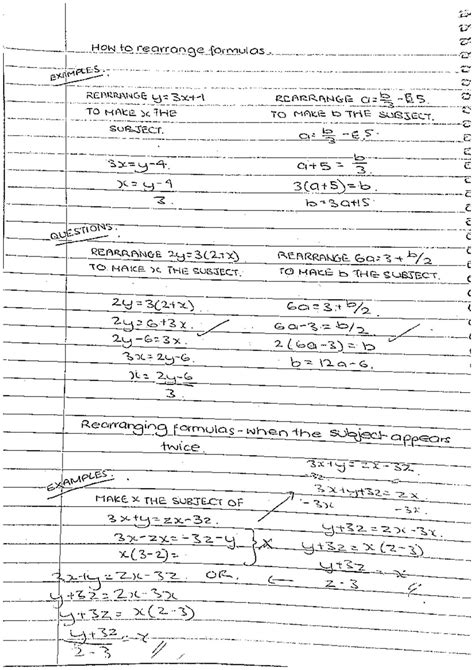 How to rearrange formulas.
EXAMPLES.
REARRANGE y=3x+1
TO MAKE x THE
SUBJECT.
3x=y-4.
x=y-4
3.
REARRANGE a=b/3-5.
TO MAKE b THE SUBJECT.
a=b/3-5.
a+5=b/3
3(a+5)=b.
b=3a+15
QUESTIONS.
REARRANGE 2y=3(2+x)
TO MAKE x THE SUBJECT.
2y=3(2+x)
2y=6+3x.
2y-6=3x.
3x=2y-6.
x=2y-6
3.
REARRANGE 6a=3+b/2
TO MAKE b THE SUBJECT.
6a=3+b/2
6a-3=b/2
2(6a-3)=b
b=12a-6.
Rearranging formulas-when the subject appears
twice.
EXAMPLES.
MAKE x THE SUBJECT OF
3x+y=zx-3z.
3x-zx=-3z-y
x(3-z)=
x
3x+y=zx-3z OR.
y+3z=zx-3x
y+3z=x(z-3)
y+3z=x
z-3
3x+y=zx-3z.
3x+y+3z=zx
-3x -3x.
y+3z=zx-3x.
y+3z=x(z-3)
y+3z=x
z-3